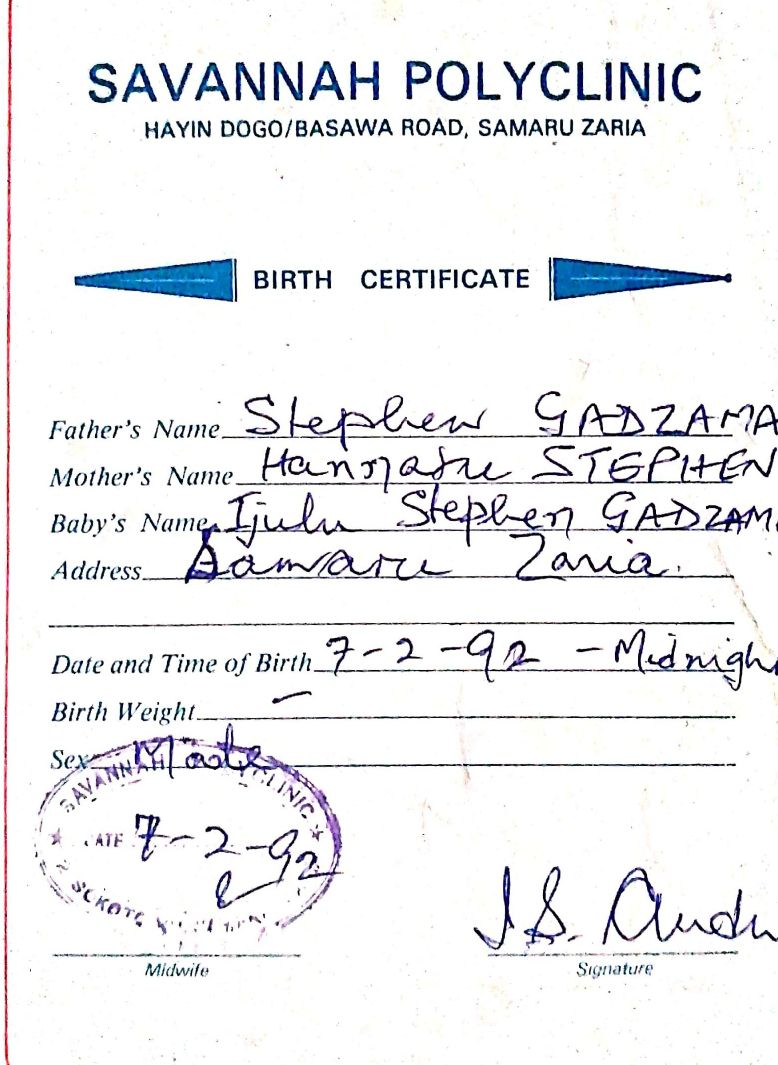 SAVANNAH POLYCLINIC
HAYIN DOGO/BASAWA ROAD, SAMARU ZARIA
BIRTH CERTIFICATE
Father's Name Stephen GADZAMA
Mother's Name Hannatu STEPHEN
Baby's Name Ijulu Stephen GADZAMA
Address Samaru Zaria.
Date and Time of Birth 7-2-92 - Midnigh
Birth Weight –
Sex Male
SAVANNAH POLYCLINIC
DATE 7-2-92
J.S. Audu
Midwife
Signature